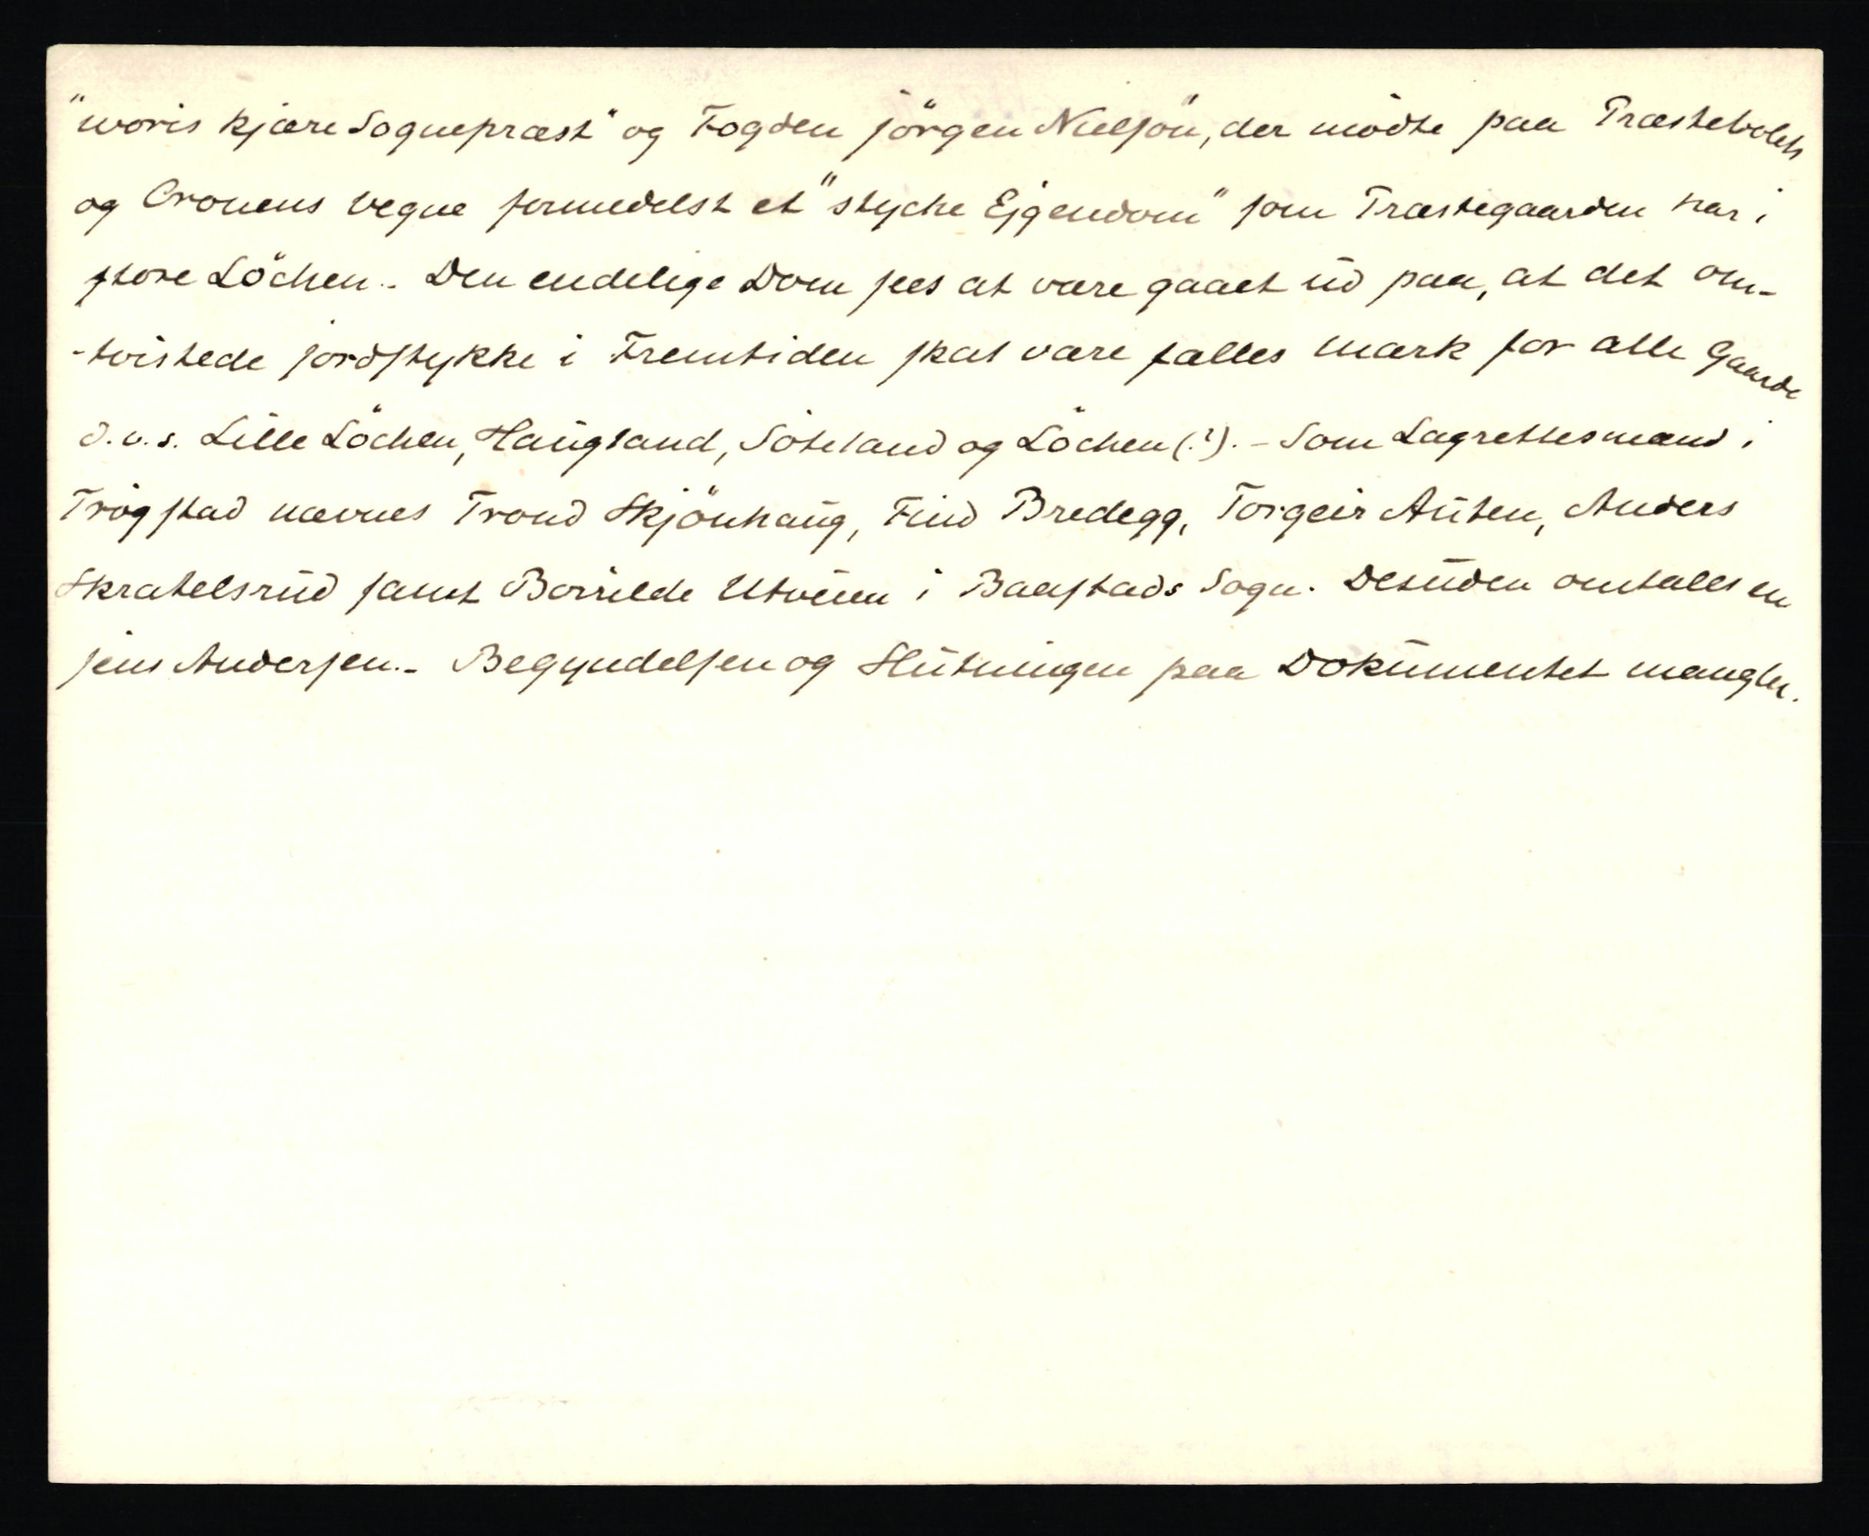 "woris kjære Sognepræst" og Fogden Jörgen Nielsön, der mödte paa Præstebolets
og Cronens vegne formedelst et "stycke Ejgendom" som Præstegaarden har i
store Löchen.- Den endelige Dom sees at være gaaet ud paa, at det om-
-tvistede jordstykke i Fremtiden skal være fælles mark for alle Gaarde
d.v.s. Lille Löchen, Haugland, Söteland og Löchen (?).- Som Lagrettesmænd i
Trögstad nævnes Trond Skjönhaug, Find Bredegg, Torgeir Auten, Anders
Skratelsrud samt Borrilde Utveien i Baastads Sogn. Desuden omtales en
Jens Andersen.- Begyndelsen og Slutningen paa Dokumentet mangler.